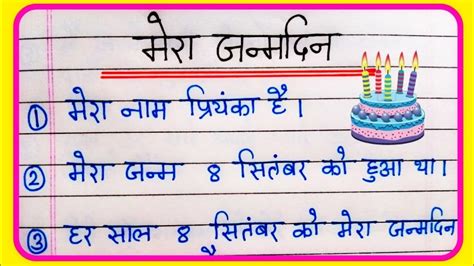 मेरा जन्मदिन
① मेरा नाम प्रियंका है।
② मेरा जन्म 8 सितंबर को हुआ था।
③ हर साल 8 सितंबर को मेरा जन्मदिन